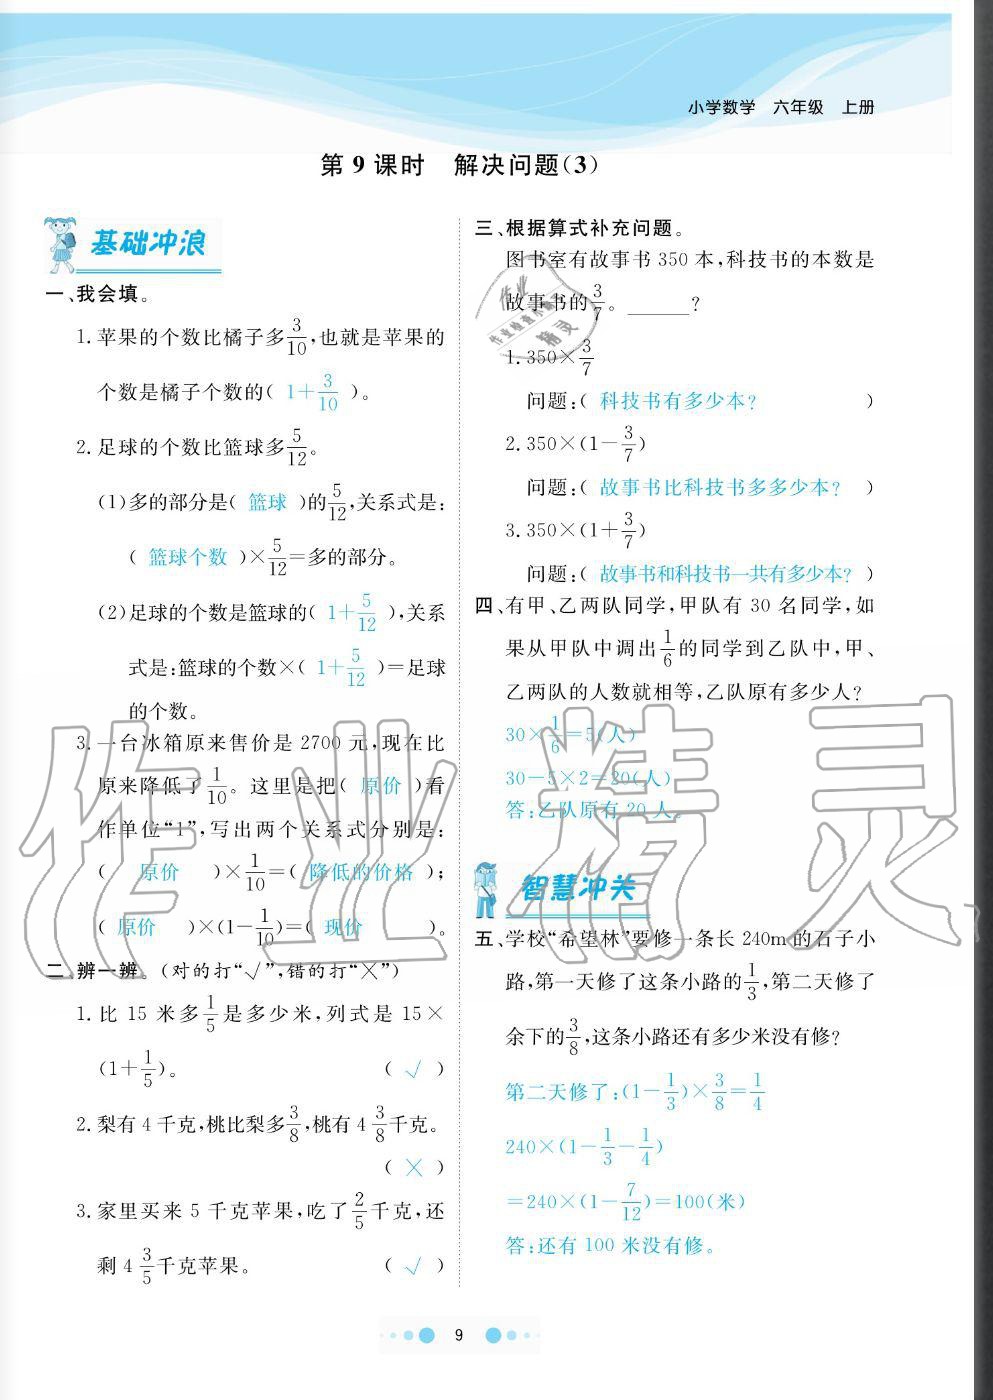 小学数学 六年级 上册
第 9 课时 解决问题(3)
基础冲浪
一、我会填。
1. 苹果的个数比橘子多3/10,也就是苹果的
个数是橘子个数的( 1+3/10 )。
2. 足球的个数比篮球多5/12。
(1)多的部分是( 篮球 )的5/12,关系式是:
( 篮球个数 )×5/12=多的部分。
(2)足球的个数是篮球的( 1+5/12 ),关系
式是:篮球的个数×( 1+5/12 )=足球
的个数。
3. 一台冰箱原来售价是 2700 元,现在比
原来降低了1/10。这里是把( 原价 )看
作单位“1”,写出两个关系式分别是:
( 原价 )×1/10=( 降低的价格 );
( 原价 )×(1-1/10)=( 现价 )。
二、辨一辨。(对的打“√”,错的打“×”)
1. 比 15 米多1/5是多少米,列式是 15×
(1+1/5)。 ( √ )
2. 梨有 4 千克,桃比梨多3/8,桃有 4 3/8千克。
( × )
3. 家里买来 5 千克苹果,吃了2/5千克,还
剩 4 3/5千克苹果。 ( √ )
三、根据算式补充问题。
图书室有故事书 350 本,科技书的本数是
故事书的3/7。______?
1. 350×3/7
问题:( 科技书有多少本? )
2. 350×(1-3/7)
问题:( 故事书比科技书多多少本? )
3. 350×(1+3/7)
问题:( 故事书和科技书一共有多少本? )
四、有甲、乙两队同学,甲队有 30 名同学,如
果从甲队中调出1/6的同学到乙队中,甲、
乙两队的人数就相等,乙队原有多少人?
30×1/6=5(人)
30-5×2=20(人)
答:乙队原有 20 人。
智慧冲关
五、学校“希望林”要修一条长 240m的石子小
路,第一天修了这条小路的1/3,第二天修了
余下的3/8,这条小路还有多少米没有修?
第二天修了:(1-1/3)×3/8=1/4
240×(1-1/3-1/4)
=240×(1-7/12)=100(米)
答:还有 100 米没有修。
9
作业精灵